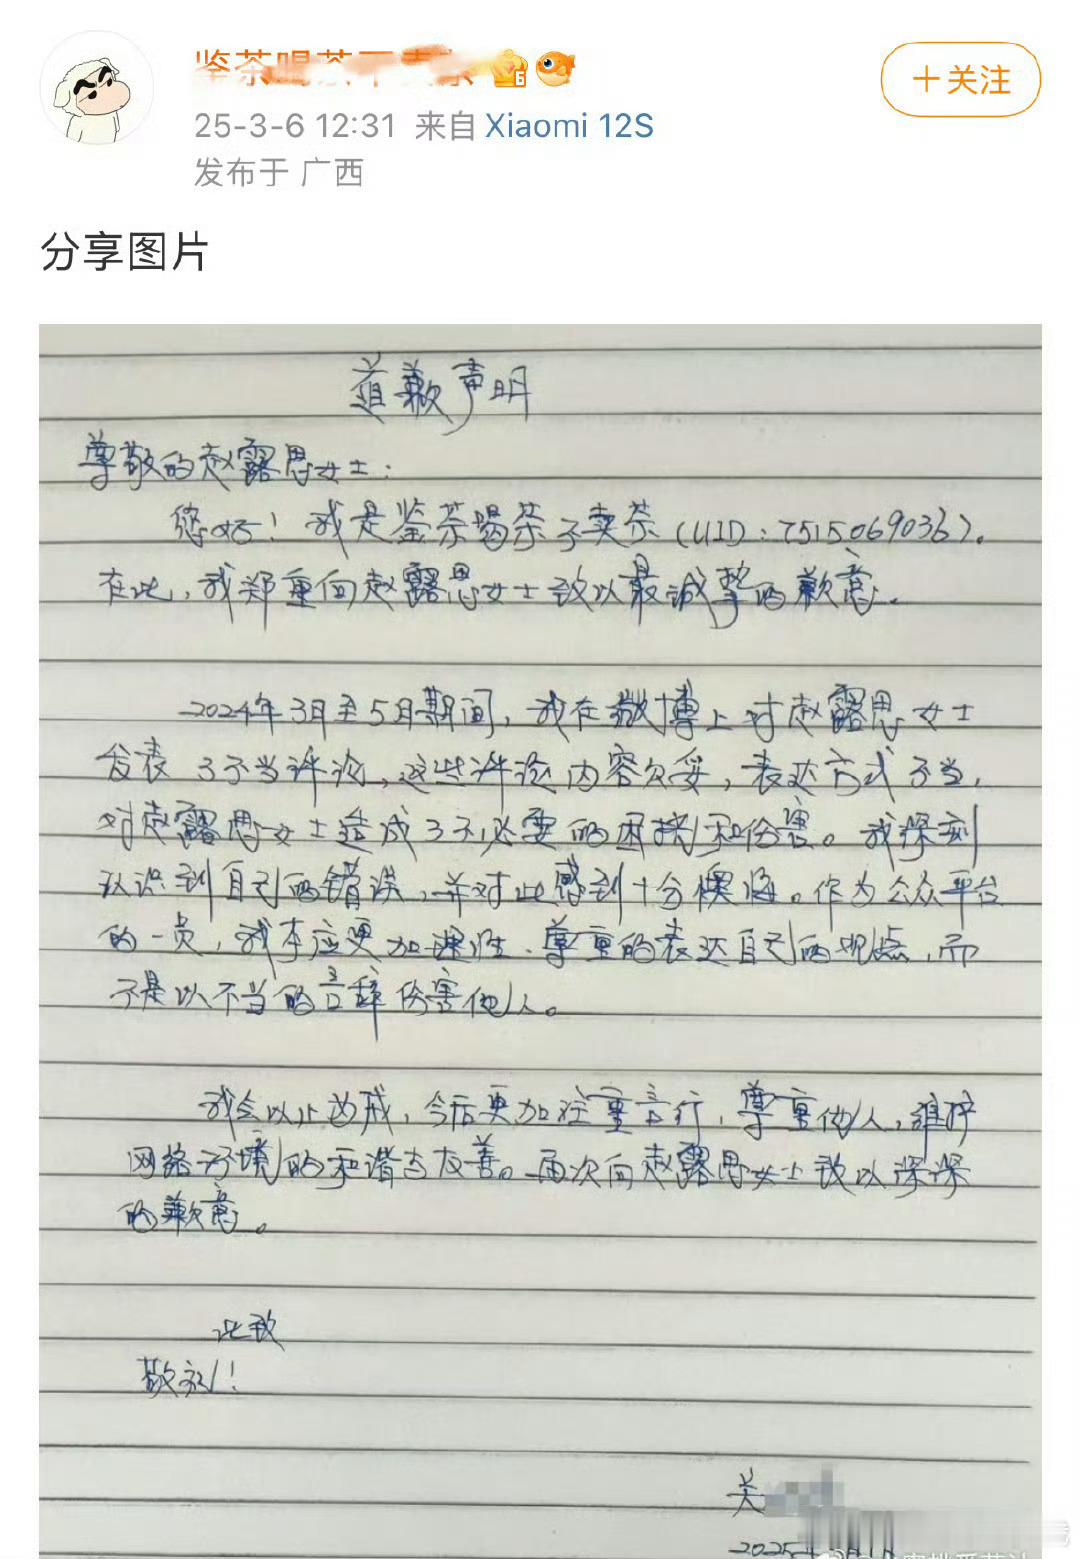 鉴茶喝茶不卖茶
25-3-6 12:31 来自 Xiaomi 12S
发布于 广西
+关注
分享图片
道歉声明
尊敬的赵露思女士：
您好！我是鉴茶喝茶不卖茶（UID：7515069036）。
在此，我郑重向赵露思女士致以最诚挚的歉意。
2024年3月至5月期间，我在微博上对赵露思女士
发表了不当评论，这些评论内容欠妥，表达方式不当，
对赵露思女士造成了不必要的困扰和伤害。我深刻
认识到自己的错误，并对此感到十分懊悔。作为公众平台
的一员，我本应更加理性、尊重的表达自己的观点，而
不是以不当的言辞伤害他人。
我会以此为戒，今后更加注重言行，尊重他人，维护
网络环境的和谐与友善。再次向赵露思女士致以深深
的歉意。
此致
敬礼！
关
2025